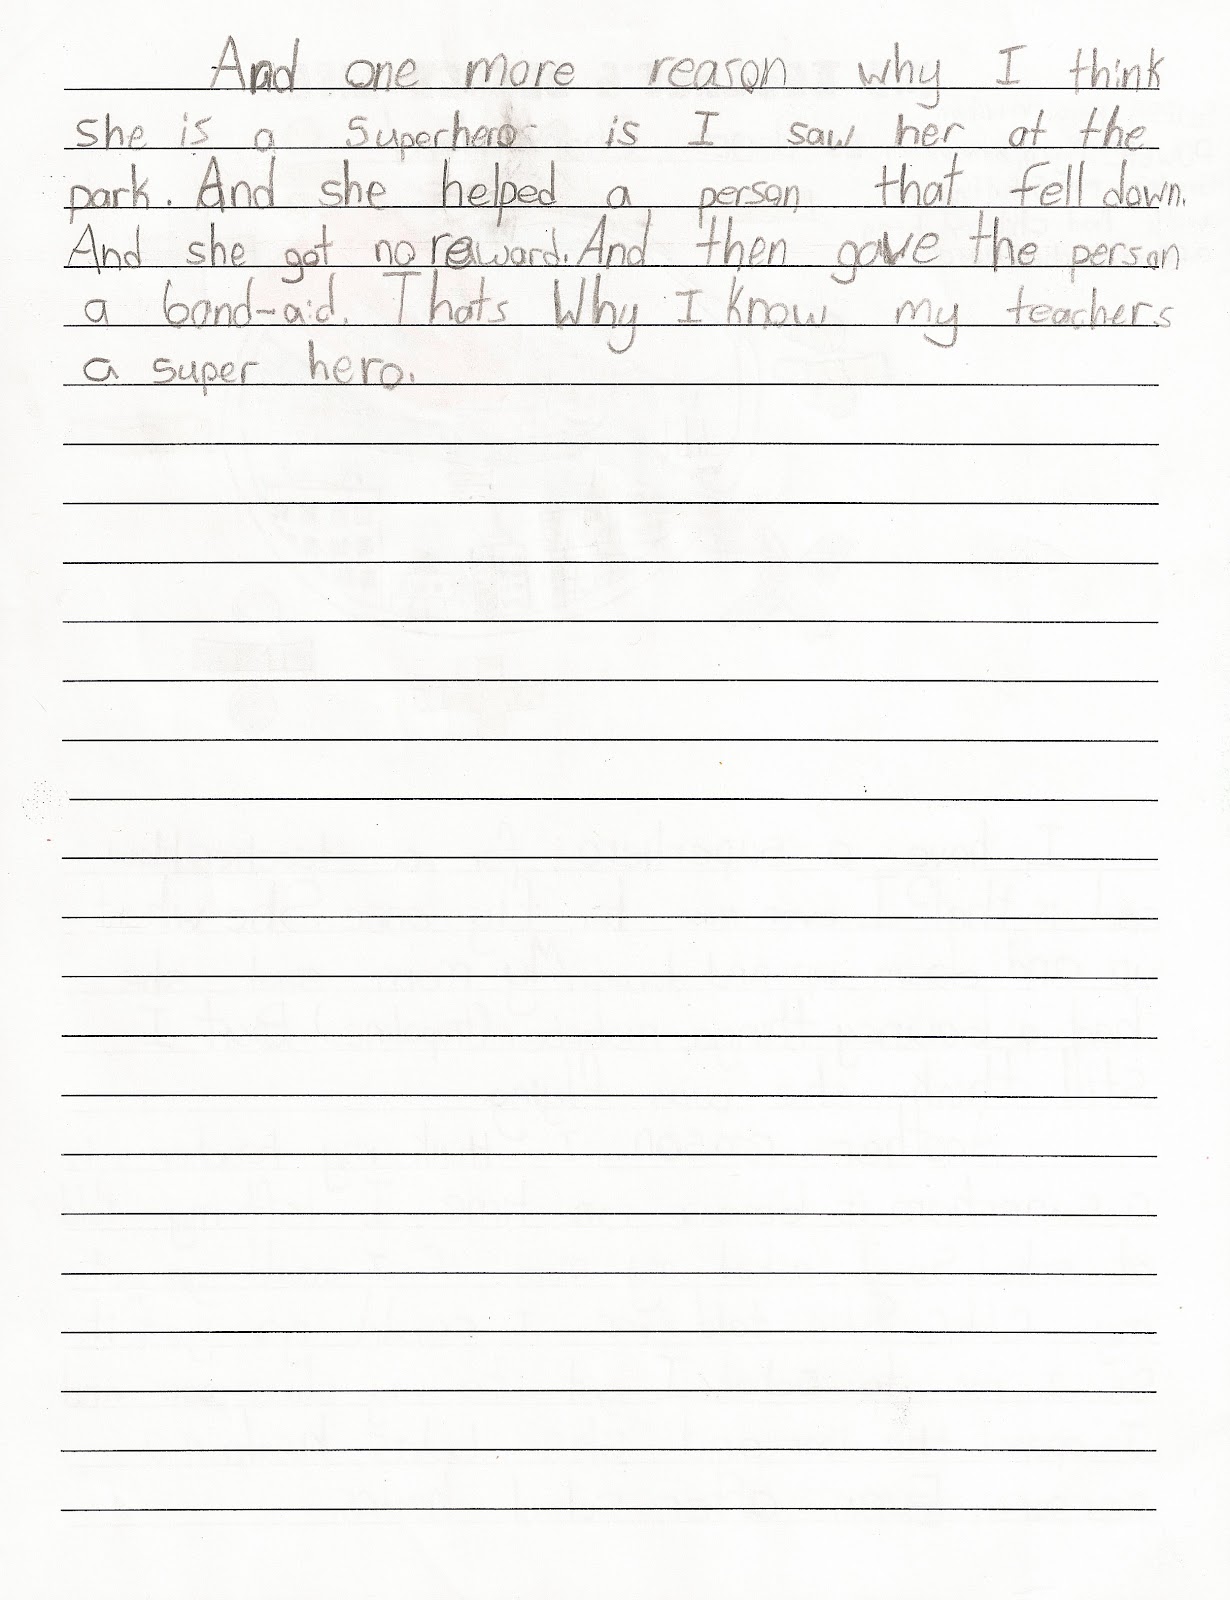 And one more reason why I think
she is a superhero is I saw her at the
park. And she helped a person that fell down.
And she got no reward. And then gave the person
a band-aid. Thats Why I know my teachers
a super hero.